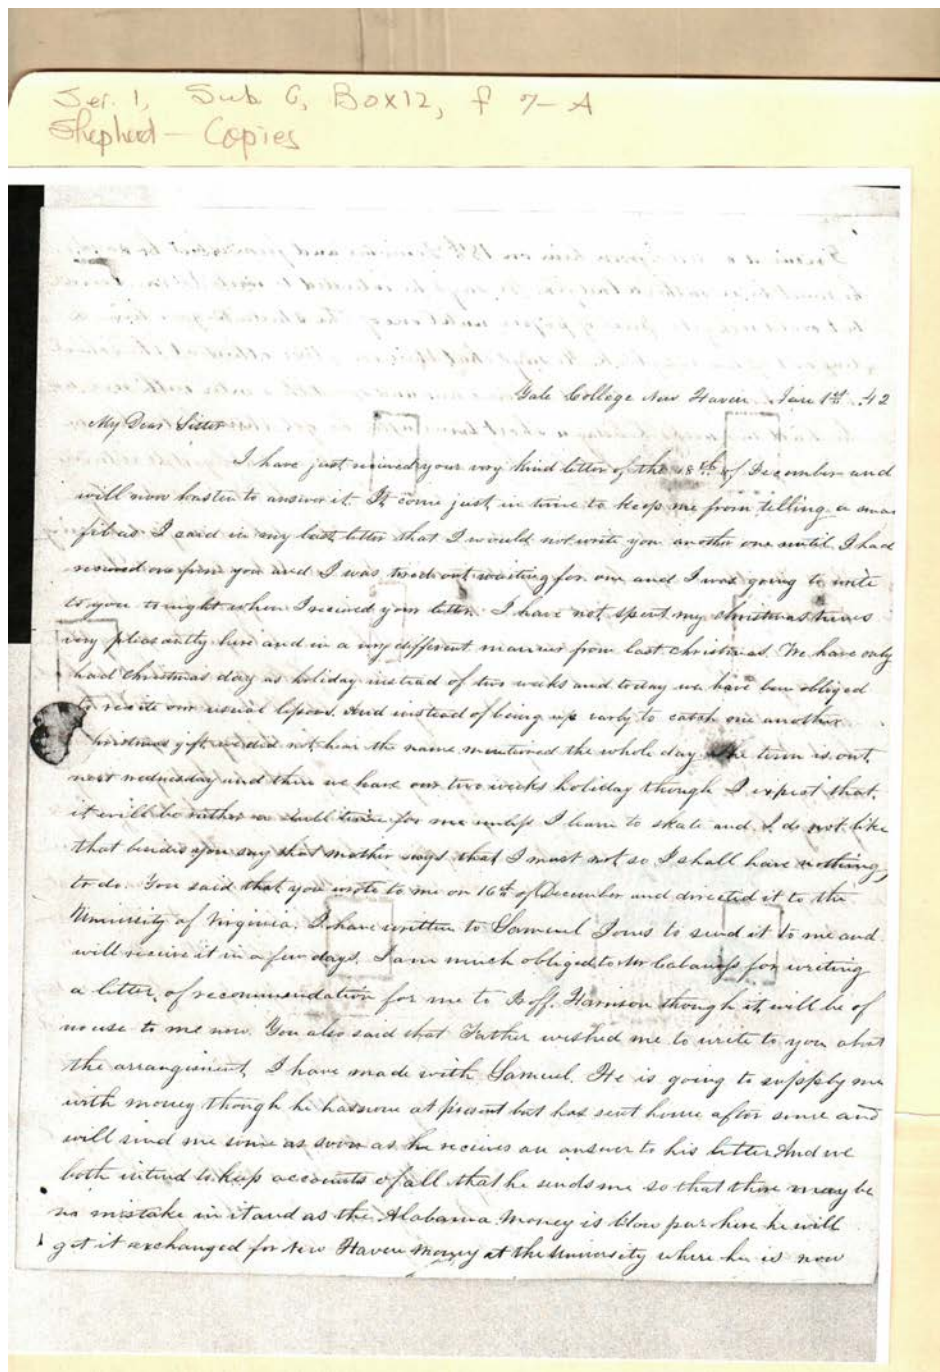 Ser. 1, Sub G, Box 12, f 7-A
Shepherd - Copies
Yale College New Haven Jan 1st 42
My Dear Sister
I have just received your very kind letter of the 18th of December and
will now hasten to answer it. It come just in time to keep me from telling a small
fib as I said in my last letter that I would not write you another one until I had
received one from you and I was tired out waiting for one and I was going to write
to you tonight when I received your letter. I have not spent my christmas times
very pleasantly here and in a very different manner from last christmas. We have only
had christmas day as holiday instead of two weeks and today we have been obliged
to recite our usual lessons. And instead of being up early to catch one another
christmas gift, we did not hear the name mentioned the whole day. The term is out
next wednesday and then we have our two weeks holiday though I expect that
it will be rather a dull time for me unless I learn to skate and I do not like
that besides you say that mother says that I must not so I shall have nothing
to do. You said that you wrote to me on 16th of December and directed it to the
University of Virginia. I have written to Samuel Jones to send it to me and
will receive it in a few days. I am much obliged to Mr Cabaness for writing
a letter of recommendation for me to Proff. Harrison though it will be of
no use to me now. You also said that Father wished me to write to you about
the arrangement I have made with Samuel. He is going to supply me
with money though he has none at present but has sent home after some and
will send me some as soon as he receives an answer to his letter And we
both intend to keep accounts of all that he sends me so that there may be
no mistake in it and as the Alabama Money is blow par here he will
get it exchanged for New Haven Money at the University where he is now